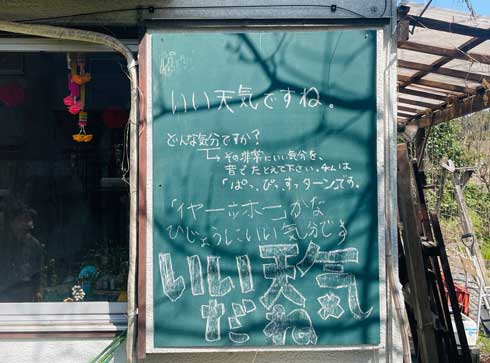 いい天気ですね。
どんな気分ですか?
その非常にいい気分を、
音でたとえて下さい。チムは
「ぱっ、ぴっ、すっターンです。
「イヤーッホー」かな
ひじょうにいい気分です
いい天気
だね